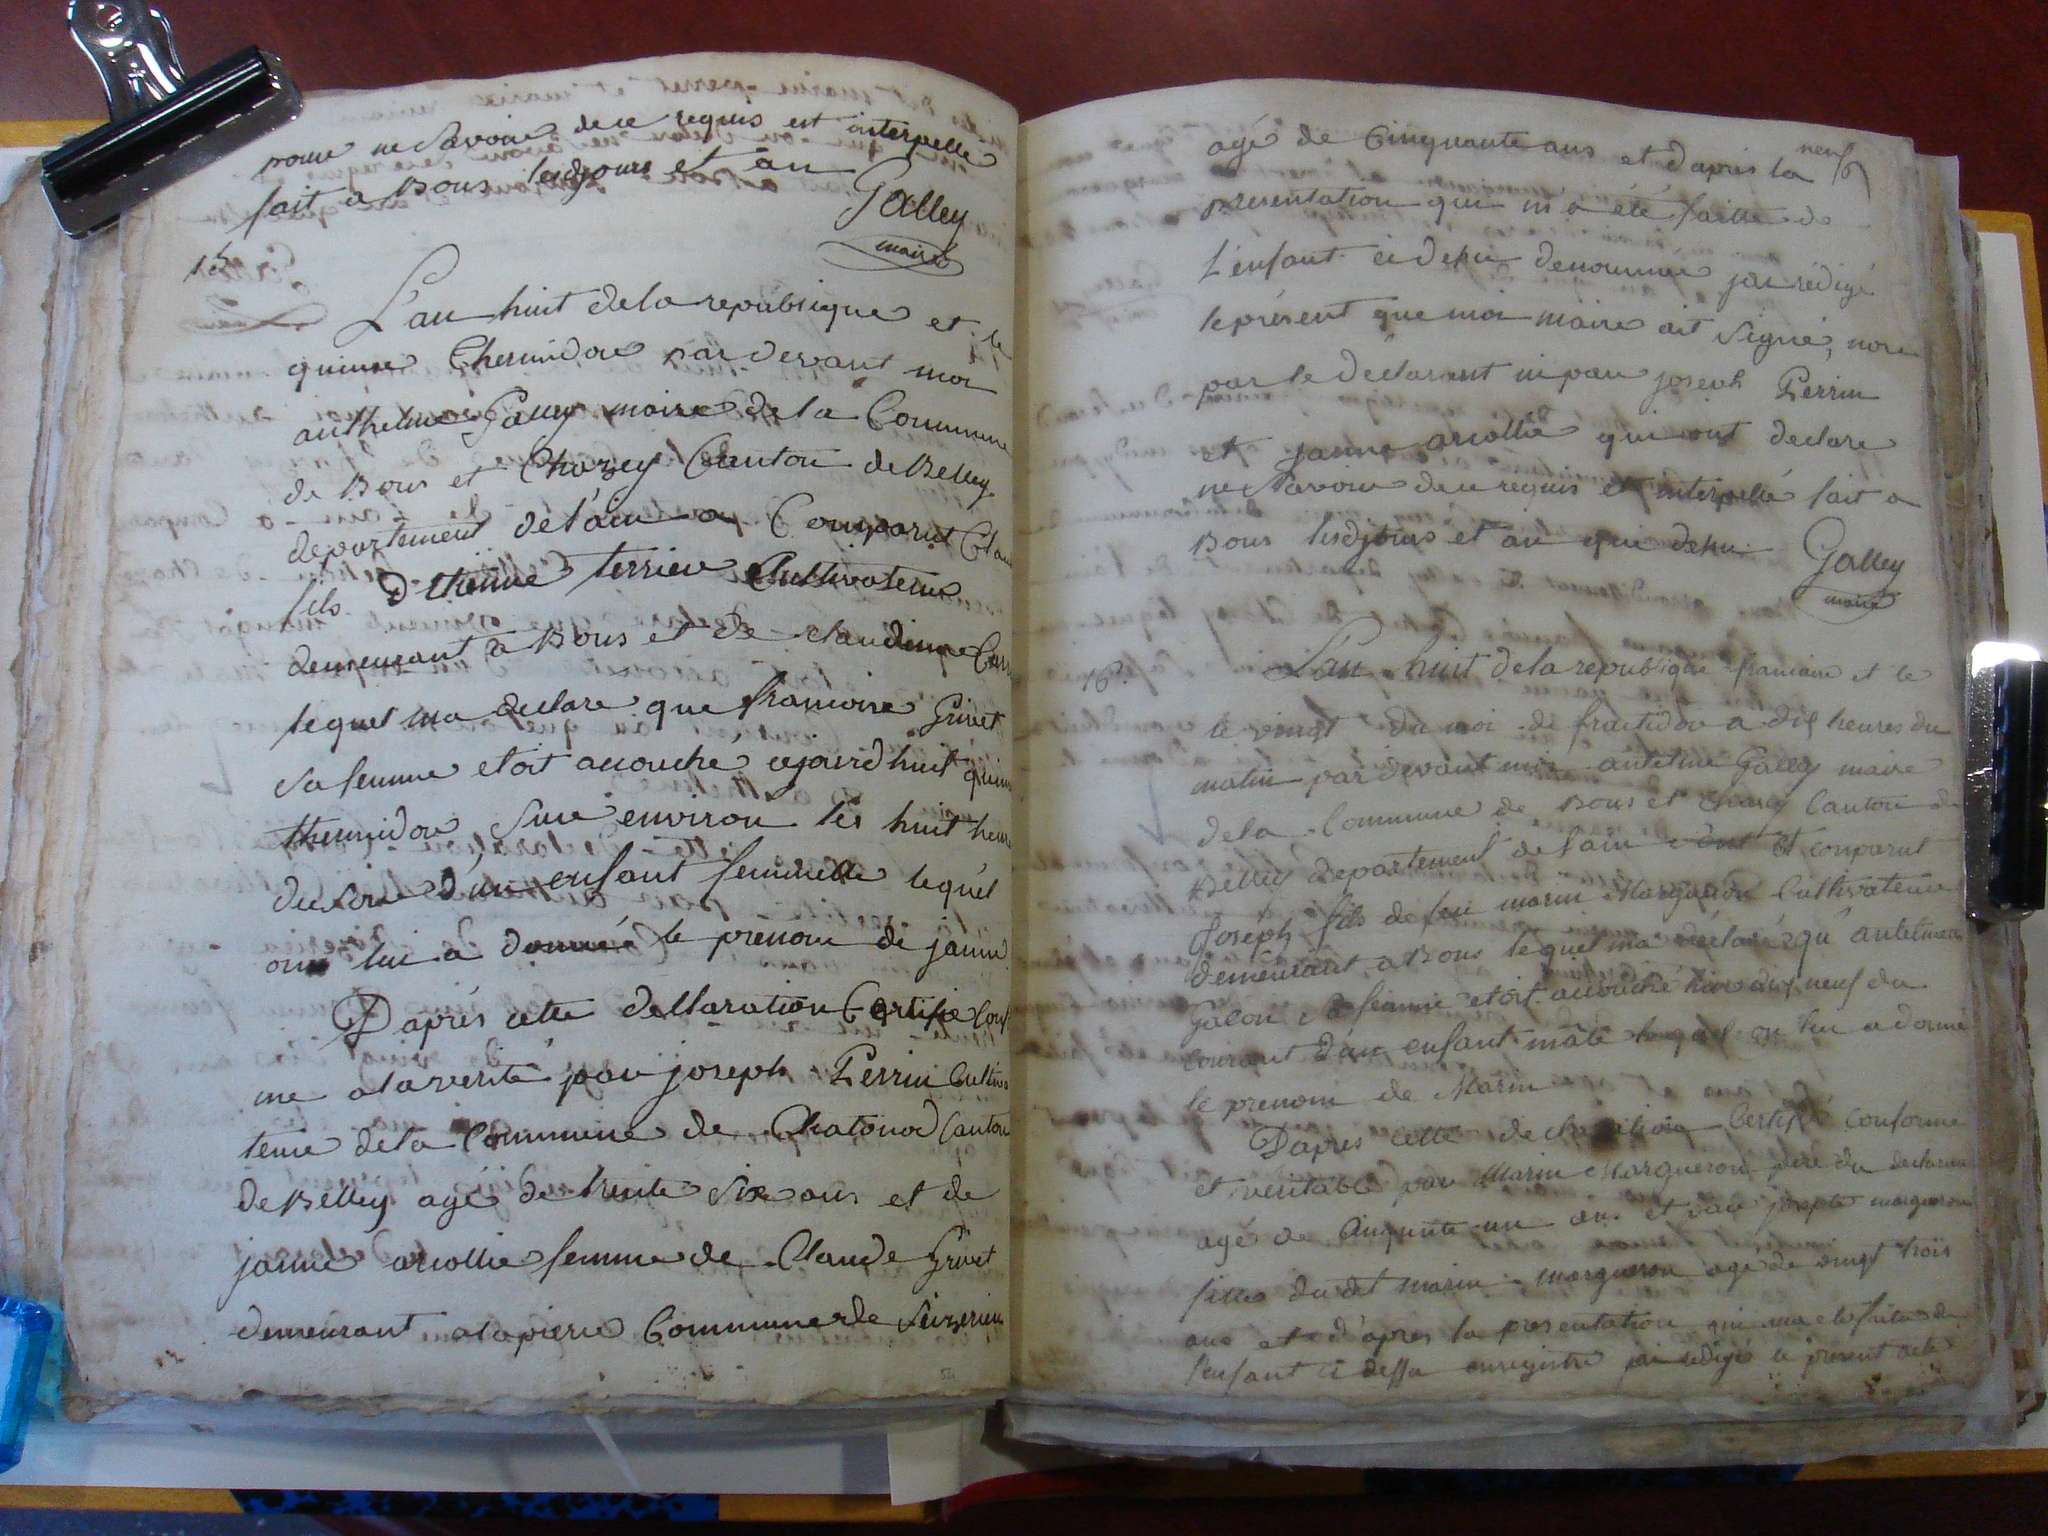 pour ne Savoir de ce requis est interpelle
fait a Bons lesdjours et an
Galley
maire
15
L'an huit de la republique et le
quinse Thermidor par devant moi
anthelme Galley maire de la Commune
de Bons et Chazey Canton de Belley
departement de l'ain a Comparut Clau
fils d'Etienne terrier Cultivateur
demeurant a Bons et de claudine
lequel ma declare que francoise Grivet
sa femme etoit acouché cejourd'huit quinse
thermidor sur environ les huit heure
du soir d'un enfant femmelle lequel
on lui a donné le prenom de janne
D'aprés cette declaration Certifie Conf
me a la verité par joseph Perrin Cultiva
teur de la Commune de Chatonod Canton
de Belley agé de trente six ans et de
janne arcollie femme de Claude Grivet
demeurant a lapierre Commune de Seizerieu
neuf
agé de Cinquante ans et d'apres la
presentation qui m'a été faitte de
L'enfant ci dessu denommé jai rédigé
le présent que moi maire ait Signé, non
par le déclarant ni par joseph Perrin
et janne arcollie qui ont declare
ne Savoir de ce requis et interpellé fait a
Bons lesdjours et an que dessu
Galley
maire
16
L'an huit de la republique francaise et le
le vingt du moi de fructidor a dix heures du
matin par devant moi antelme Galley maire
de la Commune de Bons et Chazey Canton de
Belley departement de l'ain est comparut
Joseph fils de feu marin Margueron Cultivateur
demeurant a Bons lequel ma déclaré qu'antelmette
Galon sa femme etoit acouché hier dix neuf du
courant d'un enfant mâle lequel on lui a donné
le prenom de Marin
D'apres cette declaration Certifié conforme
et veritable par Marin Margueron pere du declarant
agé de Cinquante un ans et par josepte margueron
fille du dit marin margueron agé de vingt trois
ans et d'apres la presentation qui ma ete faite de
l'enfant ci dessu enregistre jai redigé le present acte